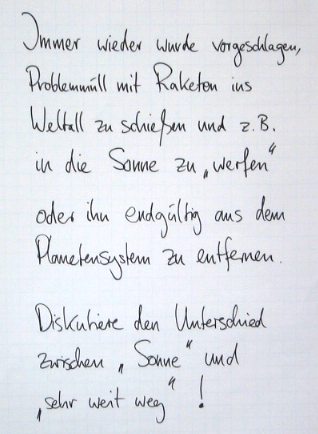 Immer wieder wurde vorgeschlagen,
Problemmüll mit Raketen ins
Weltall zu schießen und z.B.
in die Sonne zu „werfen“
oder ihn endgültig aus dem
Planetensystem zu entfernen.
Diskutiere den Unterschied
zwischen „Sonne“ und
„sehr weit weg“!